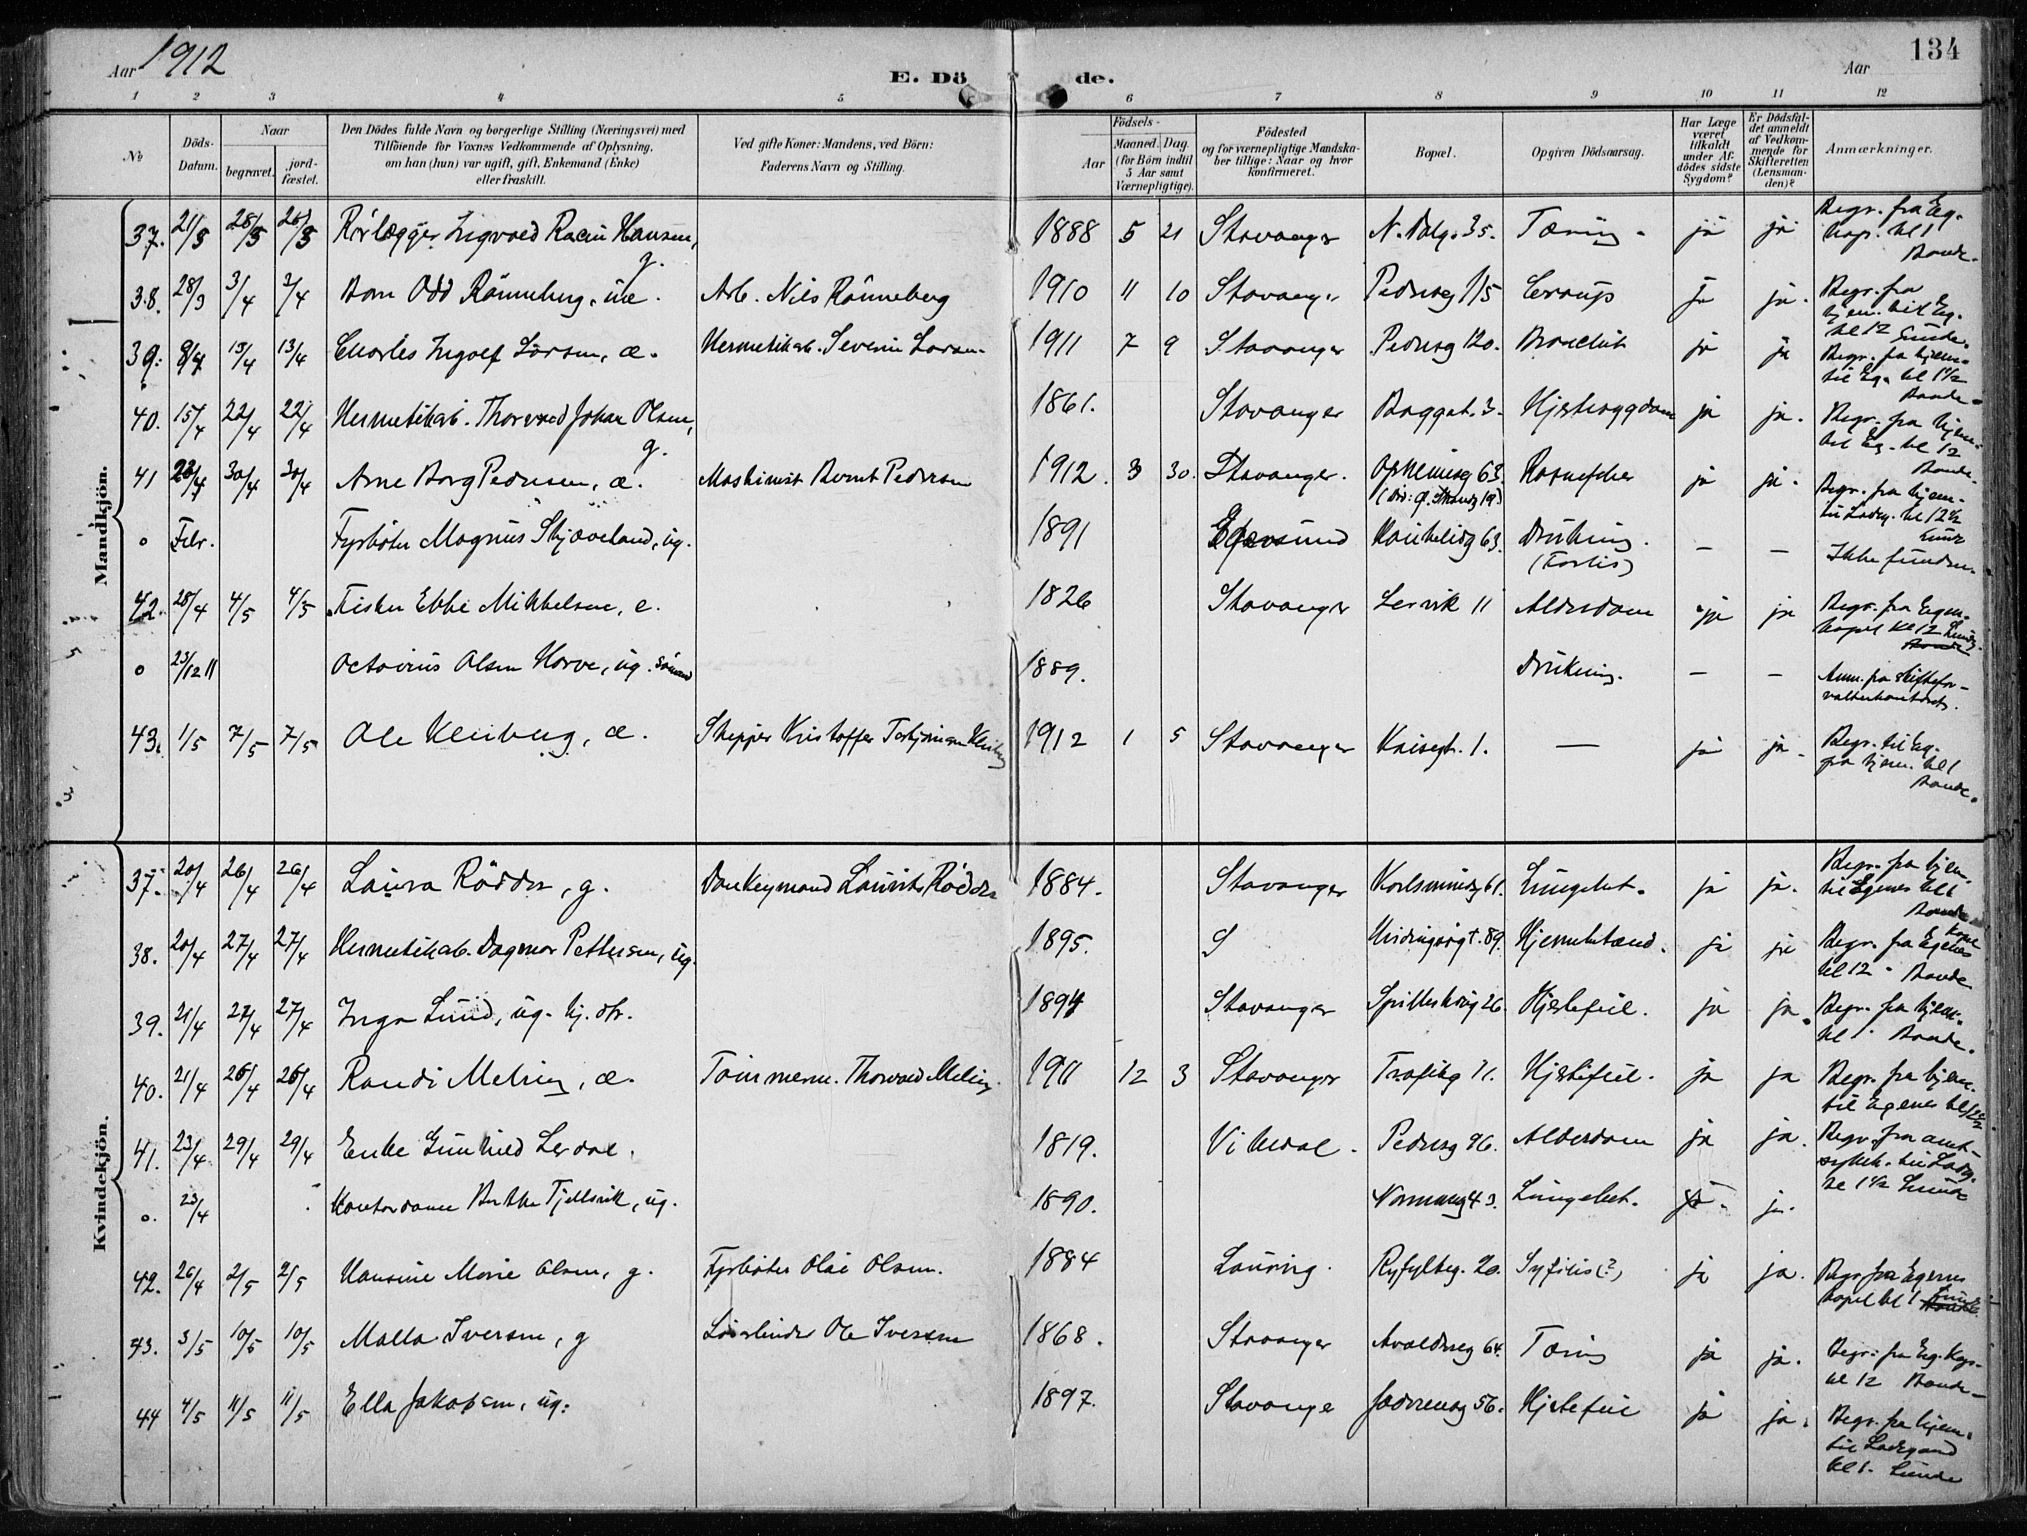 Aar 1912
E. Dö de.
Aar 134
1 2 3 4 5 6 7 8 9 10 11 12
No
Döds-
Datum.
Naar
begravet.
jord-
fæstet.
Den Dödes fulde Navn og borgerlige Stilling (Næringsvei) med
Tilföiende for Voxnes Vedkommende af Oplysning,
om han (hun) var ugift, gift, Enkemand (Enke)
eller fraskilt.
Ved gifte Koner: Mandens, ved Börn:
Faderens Navn og Stilling.
Födsels-
Aar
Maaned.
Dag.
(for Börn indtil
5 Aar samt
Værnepligtige).
Födested
og for værnepligtige Mandska-
ber tillige: Naar og hvor
konfirmeret.
Bopæl.
Opgiven Dödsaarsag.
Har Læge
været
tilkaldt
under Af-
dödes sidste
Sygdom?
Er Dödsfal-
det anmeldt
af Vedkom-
mende for
Skifteretten
(Lensman-
den)?
Anmærkninger.
Mandkjön.
37. 21/3 28/3 26/3 Rörlægger Ingvald Hansen, g. 1888 5 21 Stavanger N. Dalg. 35. Tæring. ja ja Begr. fra Eg. kap. kl 1 Bande.
38. 28/3 3/4 3/4 Barn Odd Rönneberg, uæ. Arb. Nils Rönneberg 1910 11 10 Stavanger Pedersg 115 Croup ja ja. Begr. fra hjem. til Eg. kl 12 Lunde.
39. 8/4 13/4 13/4 Charles Ingolf Larsen, æ. Hermetikab. Severin Larsen. 1911 7 9 Stavanger Pedersg 120. Bronchit ja ja Begr. fra hjem. til Eg. kl 1 1/2 Bande.
40. 15/4 22/4 22/4 Hermetikab. Thorvald Johan Olsen, g. 1861. Stavanger Baggat. 3. Hjertesygdom ja ja. Begr. fra hjem. til Eg. kl 12 Bande.
41 23/4 30/4 30/4 Arne Borg Pedersen, æ. Maskinist Bernt Pedersen 1912. 3 30. Stavanger. Opheimsg 63. ja ja. Begr. fra hjem. til Ladeg. kl 12 1/2 Lunde
o Febr. Fyrböter Magnus Skjæveland, ug. 1891 Egersund 63. Drukning. (Fortis) — — Ikke funden.
42. 28/4 4/5 4/5 Fisker Ebbe Mikkelsen, e. 1826 Stavanger Lervik 11 Alderdom ja ja Begr. fra Egen. kapel kl 12 Lunde.
o 23/12 11 Octavius Olsen Horve, ug. sömand 1889. Drukning. — — Anm. fra skiftefor-
valterkontoret.
43. 1/5 7/5 7/5 Ole Kleiberg, æ. Skipper Kristoffer Kleiberg 1912 1 5 Stavanger 1. — ja ja. Begr. til Eg. fra hjem. kl 1 Bande.
Kvindekjön.
37. 20/4 26/4 26/4 Laura Rödder, g. Donkeymand Laurits Rödder 1884. Stavanger Karlsminde 61. Lungebet. ja ja. Begr. fra hjem. til Egenes kl 1 Bande
38. 20/4 27/4 27/4 Hermetikab. Dagmar Pettersen, ug. 1895. S 89. ja ja Begr. fra Egenes Kapel kl 12. Bande
39. 21/4 27/4 27/4 Inga Lund, ug. hj. dtr. 1894 Stavanger 26. Hjertefeil. ja ja. Begr. fra hjem. kl 1 Bande.
40. 21/4 26/4 26/4 Randi Meling, æ. Tömmerm. Thorvald Meling. 1911 12 3 Stavanger 11. Hjertefeil. ja ja Begr. fra hjem. til Egenes kl 12 1/2
41. 23/4 29/4 29/4 Enke Gunhild Lerdal. 1819. Vikedal. Pedersg 96. Alderdom ja ja. Begr. fra amt-
sykeh. til Ladeg. kl 1 1/2 Lunde
o. 23/4 Kontordame Berthe Fjellsvik, ug. 1890. Normannsg 43. Lungebet. ja. ja.
42. 26/4 2/5 2/5 Hansine Marie Olsen, g. Fyrböter Olai Olsen. 1884 Ryfylkeg. 20. Syfilis (?) ja ja. Begr. fra Egenes kapel kl 1 Lunde
43. 3/5 10/5 10/5 Malla Iversen, g Ole Iversen 1868. Stavanger Avaldsneg 64. Tæring ja ja. Begr. fra Eg. Kap. kl 12 Bande
44 4/5 11/5 11/5 Ella Jakobsen, ug. 1897. Stavange Jædrenag 56. Hjertefeil ja ja. Begr. fra hjem. til Ladegaard kl 1. Lunde